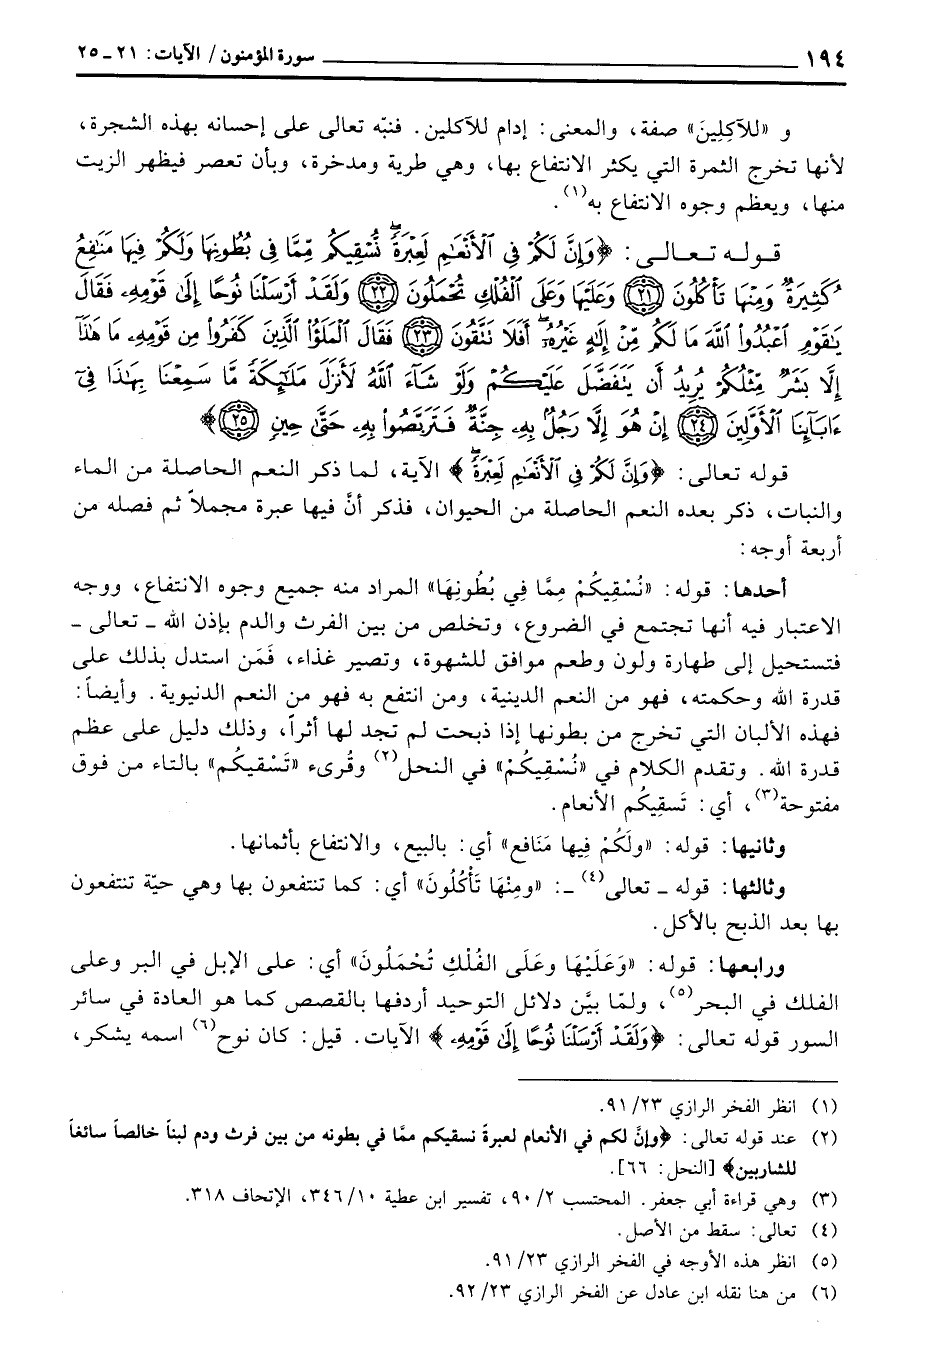 ١٩٤ سورة المؤمنون / الآيات: ٢١ ـ ٢٥
و «للآكِلِينَ» صفة، والمعنى: إدام للآكلين. فنبّه تعالى على إحسانه بهذه الشجرة،
لأنها تخرج الثمرة التي يكثر الانتفاع بها، وهي طرية ومدخرة، وبأن تعصر فيظهر الزيت
منها، ويعظم وجوه الانتفاع به(١).
قوله تعالى: ﴿وَإِنَّ لَكُمْ فِي ٱلْأَنْعَٰمِ لَعِبْرَةً ۖ نُّسْقِيكُم مِّمَّا فِي بُطُونِهَا وَلَكُمْ فِيهَا مَنَٰفِعُ
كَثِيرَةٌ وَمِنْهَا تَأْكُلُونَ ٢١ وَعَلَيْهَا وَعَلَى ٱلْفُلْكِ تُحْمَلُونَ ٢٢ وَلَقَدْ أَرْسَلْنَا نُوحًا إِلَىٰ قَوْمِهِۦ فَقَالَ
يَٰقَوْمِ ٱعْبُدُوا۟ ٱللَّهَ مَا لَكُم مِّنْ إِلَٰهٍ غَيْرُهُۥٓ ۖ أَفَلَا تَتَّقُونَ ٢٣ فَقَالَ ٱلْمَلَؤُا۟ ٱلَّذِينَ كَفَرُوا۟ مِن قَوْمِهِۦ مَا هَٰذَآ
إِلَّا بَشَرٌ مِّثْلُكُمْ يُرِيدُ أَن يَتَفَضَّلَ عَلَيْكُمْ وَلَوْ شَآءَ ٱللَّهُ لَأَنزَلَ مَلَٰٓئِكَةً مَّا سَمِعْنَا بِهَٰذَا فِيٓ
ءَابَآئِنَا ٱلْأَوَّلِينَ ٢٤ إِنْ هُوَ إِلَّا رَجُلٌۢ بِهِۦ جِنَّةٌ فَتَرَبَّصُوا۟ بِهِۦ حَتَّىٰ حِينٍ ٢٥﴾
قوله تعالى: ﴿وَإِنَّ لَكُمْ فِي ٱلْأَنْعَٰمِ لَعِبْرَةً ۖ﴾ الآية، لما ذكر النعم الحاصلة من الماء
والنبات، ذكر بعده النعم الحاصلة من الحيوان، فذكر أنَّ فيها عبرة مجملاً ثم فصله من
أربعة أوجه:
أحدها: قوله: «نُسْقِيكُمْ مِمَّا فِي بُطُونِهَا» المراد منه جميع وجوه الانتفاع، ووجه
الاعتبار فيه أنها تجتمع في الضروع، وتخلص من بين الفرث والدم بإذن الله ـ تعالى ـ
فتستحيل إلى طهارة ولون وطعم موافق للشهوة، وتصير غذاء، فَمَن استدل بذلك على
قدرة الله وحكمته، فهو من النعم الدينية، ومن انتفع به فهو من النعم الدنيوية. وأيضاً:
فهذه الألبان التي تخرج من بطونها إذا ذبحت لم تجد لها أثراً، وذلك دليل على عظم
قدرة الله. وتقدم الكلام في «نُسْقِيكُمْ» في النحل(٢) وقُرىء «تَسْقيكُم» بالتاء من فوق
مفتوحة(٣)، أي: تَسقِيكُم الأنعام.
وثانيها: قوله: «ولَكُمْ فِيها مَنَافع» أي: بالبيع، والانتفاع بأثمانها.
وثالثها: قوله ـ تعالى(٤) ـ: «ومِنْهَا تَأْكُلُونَ» أي: كما تنتفعون بها وهي حيّة تنتفعون
بها بعد الذبح بالأكل.
ورابعها: قوله: «وَعَلَيْهَا وعَلَى الفُلْكِ تُحْمَلُونَ» أي: على الإبل في البر وعلى
الفلك في البحر(٥)، ولمّا بيَّن دلائل التوحيد أردفها بالقصص كما هو العادة في سائر
السور قوله تعالى: ﴿وَلَقَدْ أَرْسَلْنَا نُوحًا إِلَىٰ قَوْمِهِۦ﴾ الآيات. قيل: كان نوح(٦) اسمه يشكر،
(١) انظر الفخر الرازي ٩١/٢٣.
(٢) عند قوله تعالى: ﴿وإنَّ لكم في الأنعام لعبرةً نسقيكم ممَّا في بطونه من بين فرث ودم لبناً خالصاً سائغاً
للشاربين﴾ [النحل: ٦٦].
(٣) وهي قراءة أبي جعفر. المحتسب ٩٠/٢، تفسير ابن عطية ٣٤٦/١٠، الإتحاف ٣١٨.
(٤) تعالى: سقط من الأصل.
(٥) انظر هذه الأوجه في الفخر الرازي ٩١/٢٣.
(٦) من هنا نقله ابن عادل عن الفخر الرازي ٩٢/٢٣.